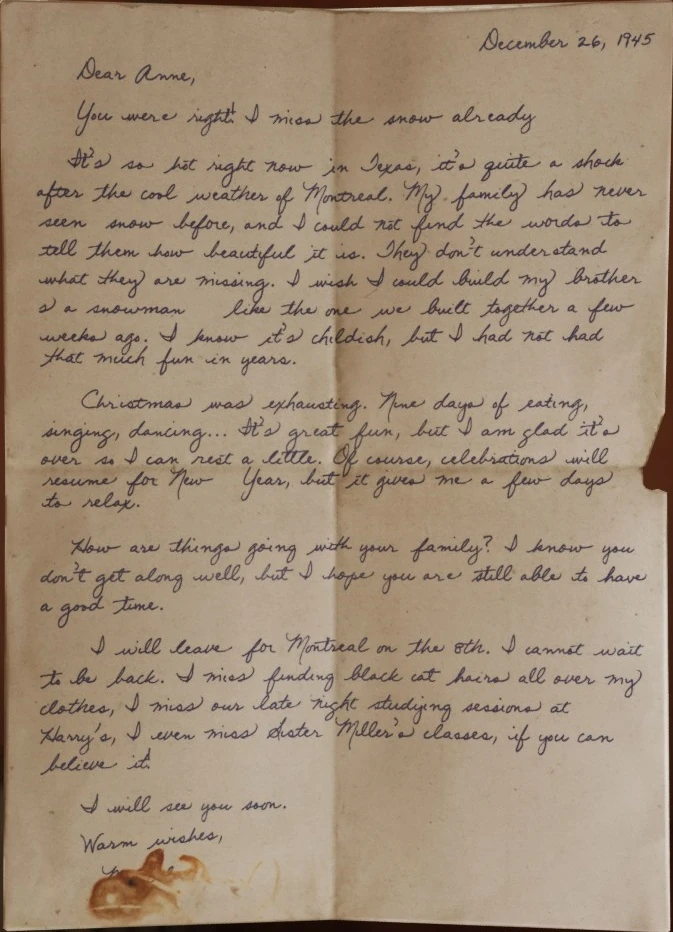 December 26, 1945
Dear Anne,
You were right! I miss the snow already
It's so hot right now in Texas, it's quite a shock
after the cool weather of Montreal. My family has never
seen snow before, and I could not find the words to
tell them how beautiful it is. They don't understand
what they are missing. I wish I could build my brother
s a snowman like the one we built together a few
weeks ago. I know it's childish, but I had not had
that much fun in years.
Christmas was exhausting. Nine days of eating,
singing, dancing... It's great fun, but I am glad it's
over so I can rest a little. Of course, celebrations will
resume for New Year, but it gives me a few days
to relax.
How are things going with your family? I know you
don't get along well, but I hope you are still able to have
a good time.
I will leave for Montreal on the 8th. I cannot wait
to be back. I miss finding black cat hairs all over my
clothes, I miss our late night studying sessions at
Harry's, I even miss Sister Miller's classes, if you can
believe it!
I will see you soon.
Warm wishes,